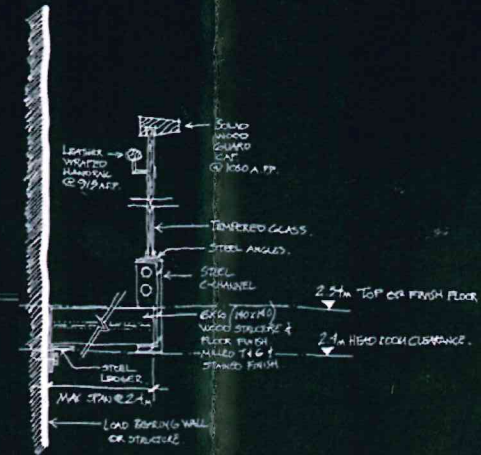 SOLID
WOOD
GUARD
CAP
@ 1060 A.F.F.
LEATHER
WRAPPED
HANDRAIL
@ 915 A.F.F.
TEMPERED GLASS.
STEEL ANGLES.
STEEL
C-CHANNEL
2.54m TOP OF FINISH FLOOR
6x6 (140x140)
WOOD STRUCTURE &
FLOOR FINISH
MILLED T&G &
STAINED FINISH
2.4m HEADROOM CLEARANCE.
STEEL
LEDGER
MAX SPAN @ 2.4m
LOAD BEARING WALL
OR STRUCTURE